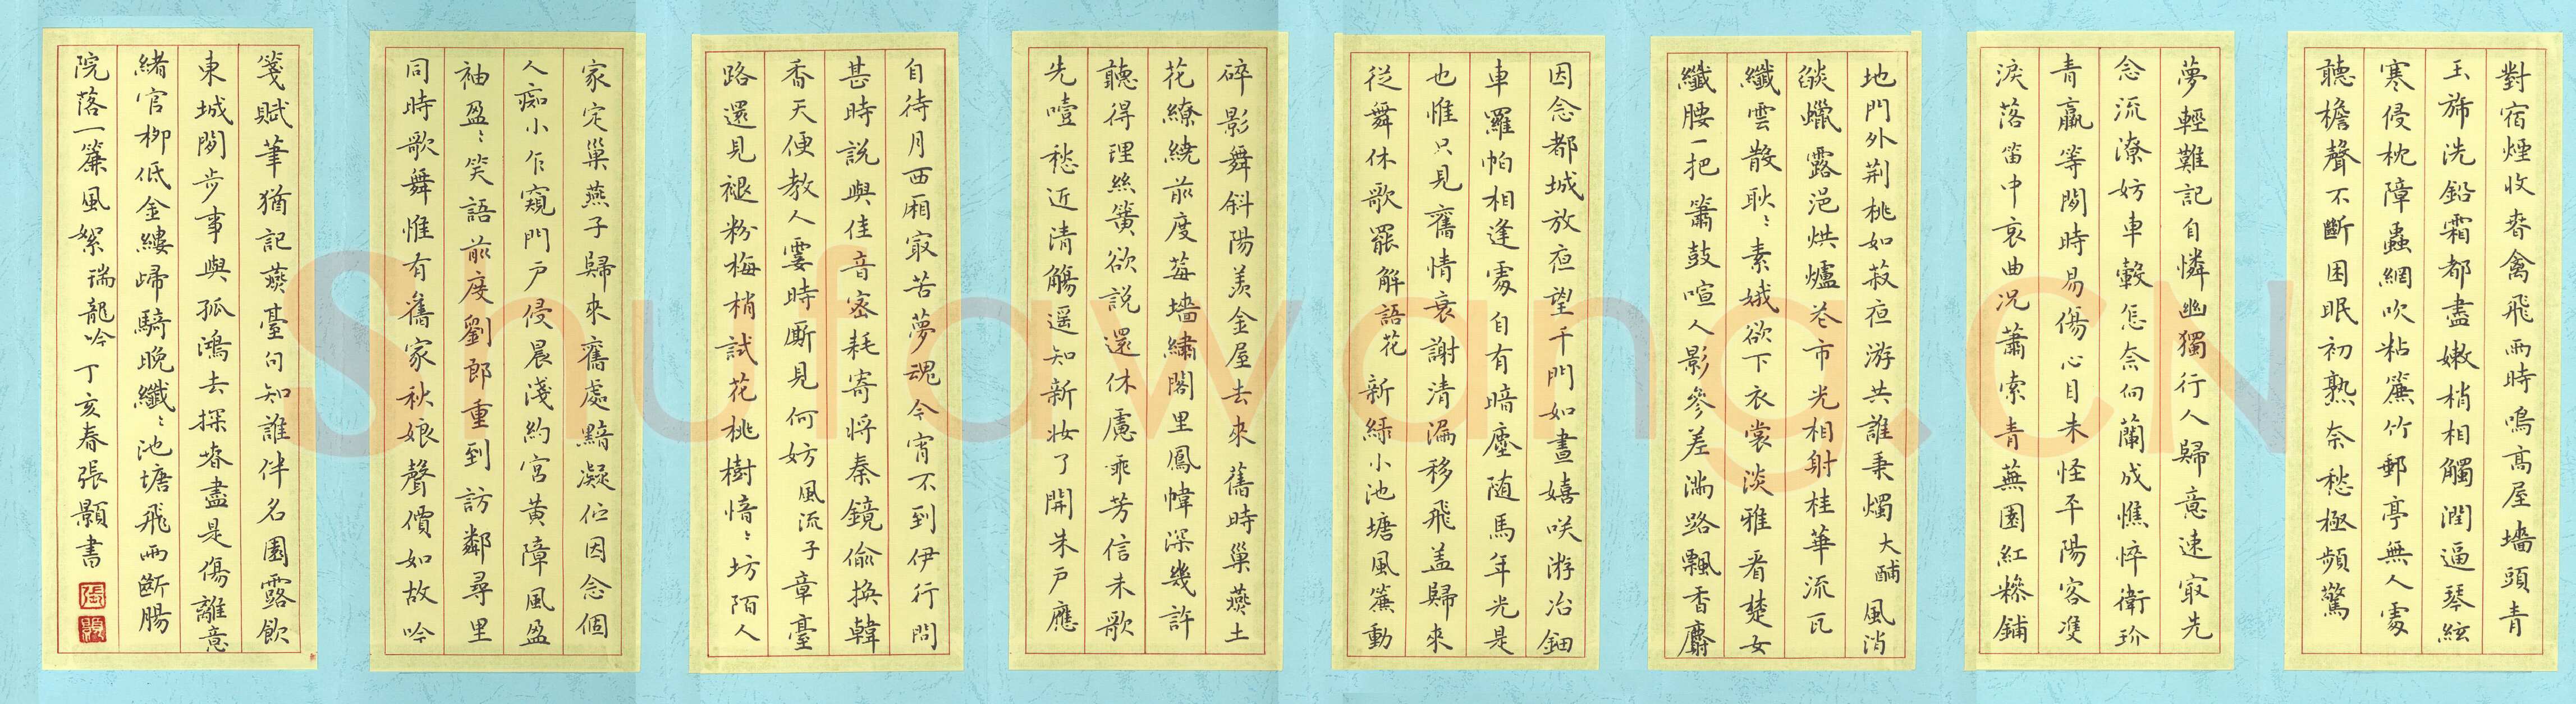 對宿煙收春禽飛雨時鳴高屋墻頭青
玉旆洗鉛霜都盡嫩梢相觸潤逼琴絃
寒侵枕障蟲網吹粘簾竹郵亭無人處
聽檐聲不斷困眠初熟奈愁極頻驚
夢輕難記自憐幽獨行人歸意速寂先
念流潦妨車轂怎奈向蘭成憔悴衛玠
青羸等閑時易傷心目未怪平陽客雙
淚落笛中哀曲况蕭索青蕪園紅糝鋪
地門外荆桃如菽夜游共誰秉燭 大酺 風消
燄蠟露浥烘爐花市光相射桂華流瓦
纖雲散耿〻素娥欲下衣裳淡雅看楚女
纖腰一把簫鼓喧人影參差滿路飄香麝
因念都城放夜望千門如晝嬉咲游冶鈿
車羅帕相逢處自有暗塵随馬年光是
也惟只見舊情衰謝清漏移飛盖歸來
從舞休歌罷 解語花 新緑小池塘風簾動
碎影舞斜陽羨金屋去來舊時巢燕土
花繚繞前度莓墻繡閣里鳳幃深幾許
聽得理絲簧欲說還休慮乖芳信未歌
先噎愁近清觴遥知新妆了開朱户應
自待月西廂寂苦夢魂今宵不到伊行問
甚時説與佳音密耗寄將秦鏡偷換韓
香天便教人霎時厮見何妨 風流子 章臺
路還見褪粉梅梢試花桃樹愔〻坊陌人
家定巢燕子歸來舊處黯凝伫因念個
人痴小乍窺門户侵晨淺約宮黄障風盈
袖盈〻笑語前度劉郎重到訪鄰尋里
同時歌舞惟有舊家秋娘聲價如故吟
箋賦筆猶記燕臺句知誰伴名園露飲
東城閑步事與孤鴻去探春盡是傷離意
緒官柳低金縷歸騎晚纖〻池塘飛雨斷腸
院落一簾風絮 瑞龍吟 丁亥春張顥書
張
顥
Shufawang.CN